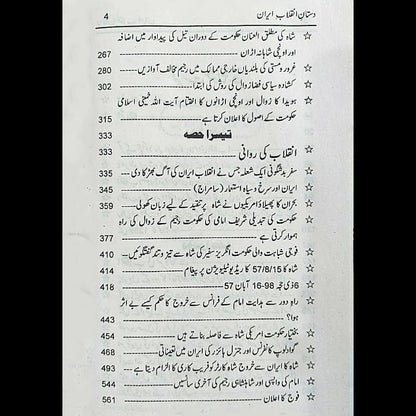 داستانِ انقلاب ایران 4
☆ شاہ کی مطلق العنان حکومت کے دوران تیل کی پیداوار میں اضافہ
اور اونچی شاہانہ اڑان 267
☆ غرور و مستی کی بلندیاں خارجی ممالک میں رجیم مخالف آوازیں 280
☆ کشادہ سیاسی فضا زوال کی روش کی ابتدا 302
☆ ہویدا کا زوال اور اونچی اڑانوں کا اختتام آیت اللہ خمینی اسلامی
حکومت کے اصول کا اعلان کرتا ہے 315
تیسرا حصہ 333
☆ انقلاب کی روانی 333
☆ سفر بدشگونی ایک شعلہ جس نے انقلاب ایران کی آگ بھڑکا دی 335
☆ ایران اور سرخ و سیاہ استعمار (سامراج) 345
☆ بحران کا پھیلاؤ امریکیوں نے شاہ پر تنقید کے لیے زبان کھولی 359
☆ حکومت کی تبدیلی شریف امامی کی حکومت رجیم کے زوال کی راہ
ہموار کرتی ہے 377
☆ فوجی شباہت والی حکومت انگریز سفیر کی شاہ سے تیز و تند گفتگوئیں 410
☆ شاہ کا 57/8/15 کا ریڈیو ٹیلیویژن پر پیغام 416
☆ 6 ذی الحجہ 98-16 آبان 57 418
☆ راہ دور سے ہدایت امام کے فرانس سے خروج کا حکم کیسے بے اثر
ہوا؟ 443
☆ بختیار حکومت امریکی شاہ سے فاصلہ بناتے ہیں 454
☆ گواڈلوپ کانفرنس اور جنرل ہائزر کی ایران میں تعیناتی 468
☆ شاہ کا ایران سے خروج شاہ کارٹر کو فریب کاری کا الزام دیتا ہے 493
☆ امام کی واپسی اور شاہنشاہی رجیم کی آخری سانسیں 544
☆ فوج کا اعلان 561